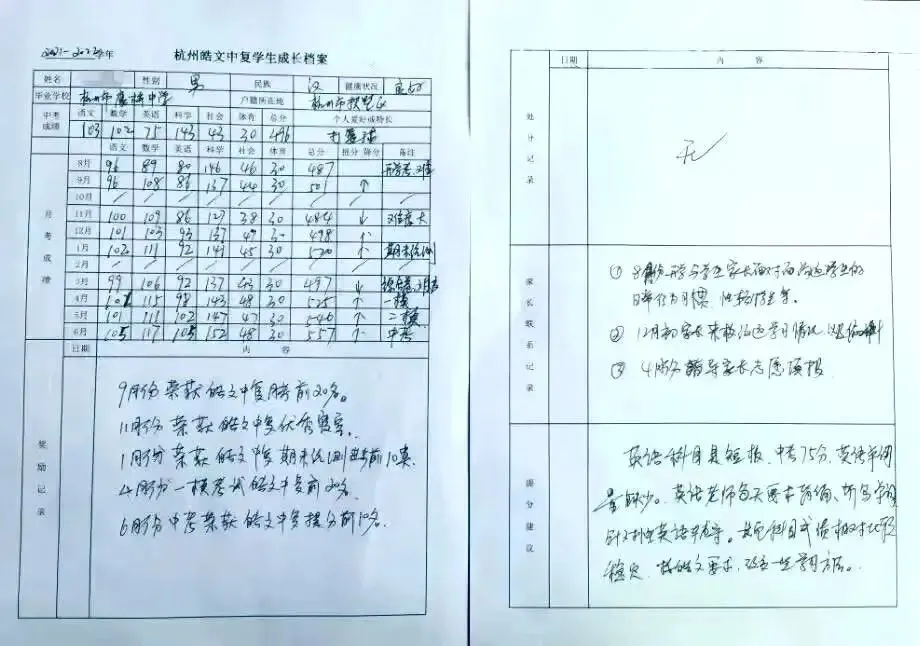 2021-2022学年
杭州皓文中复学生成长档案
姓名 性别 男 民族 汉 健康状况 良好
毕业学校 杭州市 中学 户籍所在地 杭州市拱墅区
中考成绩 语文 数学 英语 科学 社会 体育 总分 个人爱好或特长
103 102 75 143 43 30 496 打篮球
月考成绩 语文 数学 英语 科学 社会 体育 总分 班分 降分 备注
8月 96 89 80 146 46 30 487
9月 96 108 86 137 44 30 501 ↑
10月 / / / / / / / / /
11月 100 109 86 127 38 30 484 ↓ 难度大
12月 101 103 93 137 47 30 498 ↑
1月 102 111 92 141 45 30 520 ↑ 期末统测
2月 / / / / / / / / /
3月 99 106 92 137 43 30 497 ↓
4月 115 98 143 48 30 525 ↑ 一模
5月 101 111 102 147 47 30 546 ↑ 二模
6月 105 117 105 152 48 30 557 ↑ 中考
奖励记录 日期 内 容
9月份 荣获皓文中复月考前20名。
11月份 荣获皓文中复优秀
1月份 荣获 皓文中复 期末统测 前10
4月份 一模考试 皓文中复前20名。
6月份 中考荣获 皓文中复提分前10名.
日期 内 容
处分记录
无
家长联系记录
① 8月份 与学生家长面对面沟通学生的
日常行为习惯 性格 等。
② 12月初 家长来校沟通学习情况
③ 4月份 辅导家长志愿填报
提分建议
英语科目是短板,中考75分,英语单词
量缺少。英语老师每天要求背诵、听写单词
针对 英语 。其它科目成绩相对比较
稳定, 皓文要求, 一些学习方法。